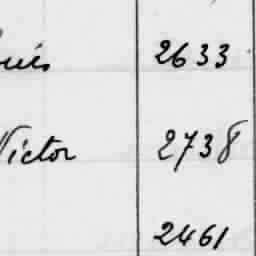 2633
Victor 2738
2461